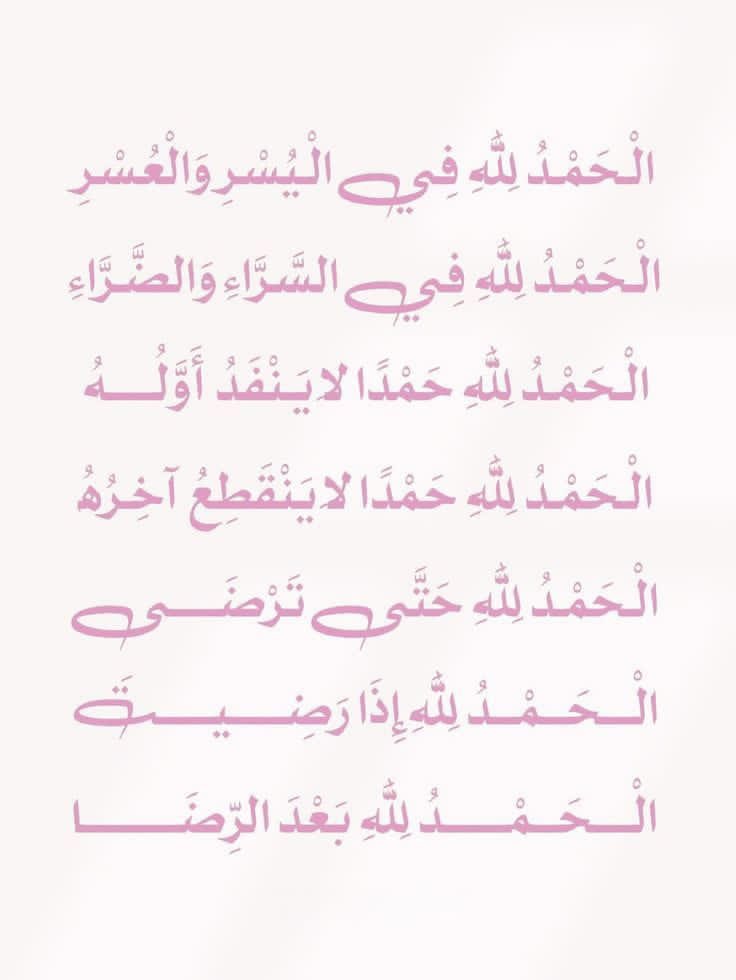 الْحَمْدُ لِلَّهِ فِي الْيُسْرِ وَالْعُسْرِ
الْحَمْدُ لِلَّهِ فِي السَّرَّاءِ وَالضَّرَّاءِ
الْحَمْدُ لِلَّهِ حَمْدًا لا يَنْفَدُ أَوَّلُهُ
الْحَمْدُ لِلَّهِ حَمْدًا لا يَنْقَطِعُ آخِرُهُ
الْحَمْدُ لِلَّهِ حَتَّى تَرْضَى
الْحَمْدُ لِلَّهِ إِذَا رَضِيتَ
الْحَمْدُ لِلَّهِ بَعْدَ الرِّضَا